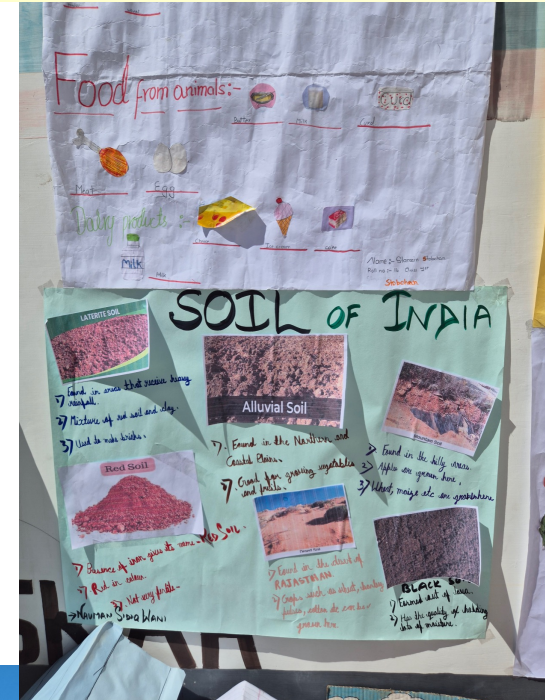 Food from animals:-
Butter Milk Curd
Meat Egg
Dairy products :-
Cheese Ice cream Cake
MILK
Milk
Name:-
Roll no :- 16
SOIL OF INDIA
LATERITE SOIL
1) Found in areas that receive heavy
rainfall.
2) Mixture of red soil and clay.
3) Used to make bricks.
Alluvial Soil
1) Found in the Northern and
Coastal Plains.
Good for growing vegetables
and fruits.
Mountain Soil
1) Found in the hilly areas
2) Apples are grown here,
3) Wheat, maize etc are
Red Soil
Presence of iron gives its name RED SOIL.
Red in colour.
Not very fertile.
NAUMAN
WANI
Desert Soil
Found in the
of
RAJASTHAN
Crops such as wheat,
cotton
can be
grown here
BLACK
1) Formed out of lava.
2) Has the quality of holding
lots of moisture.